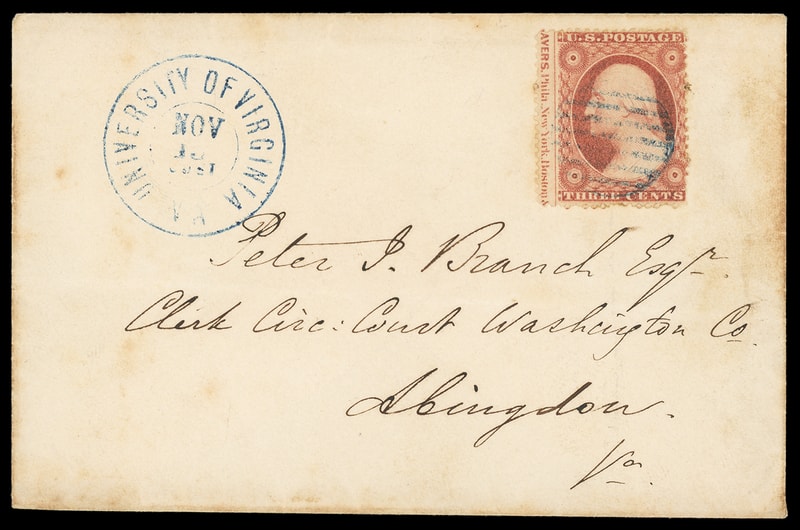 UNIVERSITY OF VIRGINIA VA
NOV
AVERS, Phila New York, Boston
U.S. POSTAGE
THREE CENTS
Peter J. Branch Esqr.
Clerk Circ: Court Washington Co.
Abingdon.
Va.